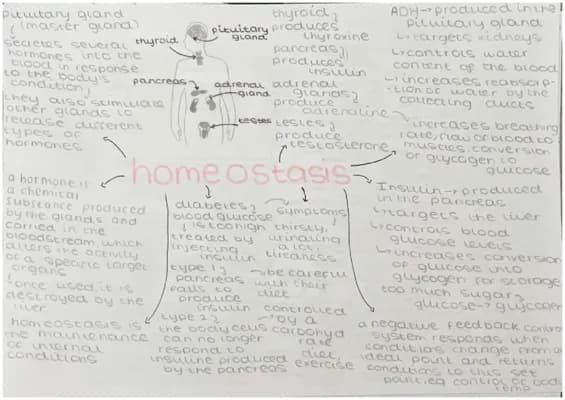 pituitary gland
(master gland)
secretes several
hormones into the
blood in response
to the body's
condition,
they also stimulate
other glands to
release different
types of
hormones
pituitary
gland
thyroid
pancreas
adrenal
gland
testes
thyroid
produces
thyroxine
pancreas
produces
insulin
adrenal
glands
produce
adrenaline
testes
produce
testosterone
ADH→produced in the
pituitary gland
targets kidneys
controls water
content of the blood
increases reabsorp-
tion of water by the
collecting ducts
increases breathing
rate, flow of blood to
muscles, conversion
of glycogen to
glucose
homeostasis
a hormone is
a chemical
substance produced
by the glands and
carried in the
bloodstream which
alters the activity
of a specific target
organs
once used it is
destroyed by the
liver
homeostasis is
the maintenance
of internal
conditions
diabetes
blood glucose
is too high
treated by
injecting
insulin
symptoms
thirsty,
urinating
a lot,
tiredness
type 1
pancreas
fails to
produce
insulin
be careful
with their
diet
type 2
the body cells
can no longer
respond to
insuline produced
by the pancreas
controlled
by a
carbohyd
rate
diet,
exercise
Insulin→produced
in the pancreas
targets the liver
controls blood
glucose levels
increases conversion
of glucose into
glycogen for storage
too much sugar
glucose→glycogen
a negative feedback control
system responds when
conditions change from an
ideal point and returns
conditions to this set
point, eg control of body
temp